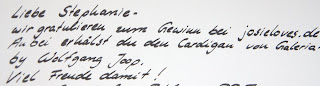 Liebe Stephanie -
wir gratulieren zum Gewinn bei josieloves.de
Anbei erhälst du den Cardigan von Galeria
by Wolfgang Joop.
Viel Freude damit!